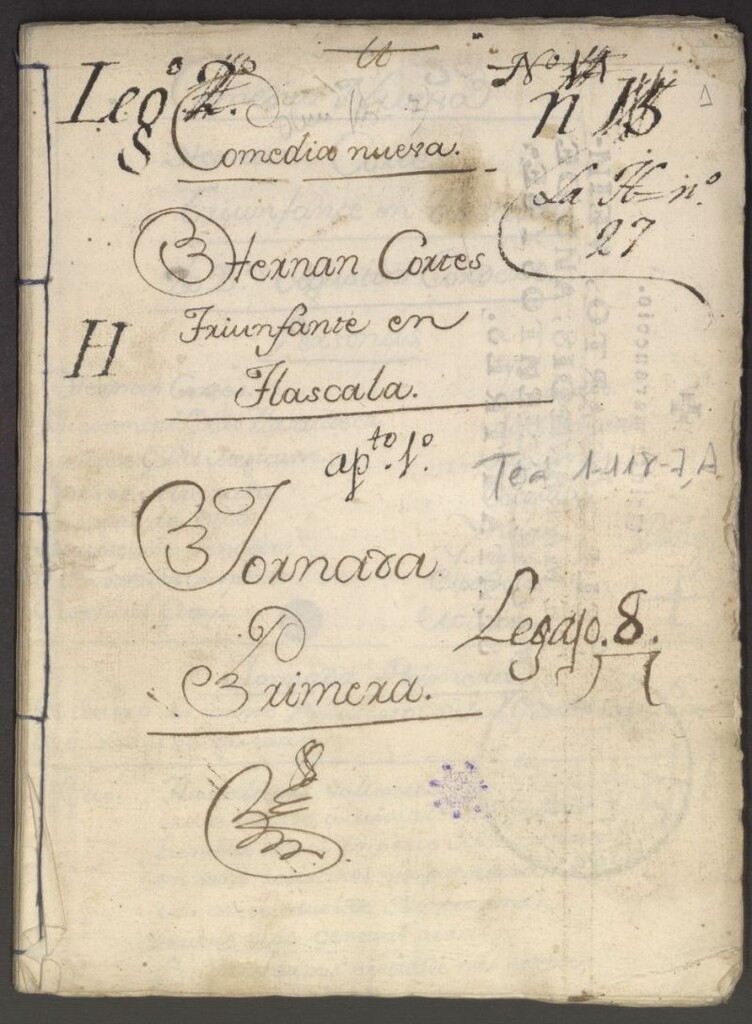 Leg.º 2.º
n 13
Comedia nueva.
La H nº
27
Hernan Cortes
Triunfante en
Tlascala.
H
ap.to 1.º
Tea 1-118-7, A
Jornada
Primera.
Legajo. 8.